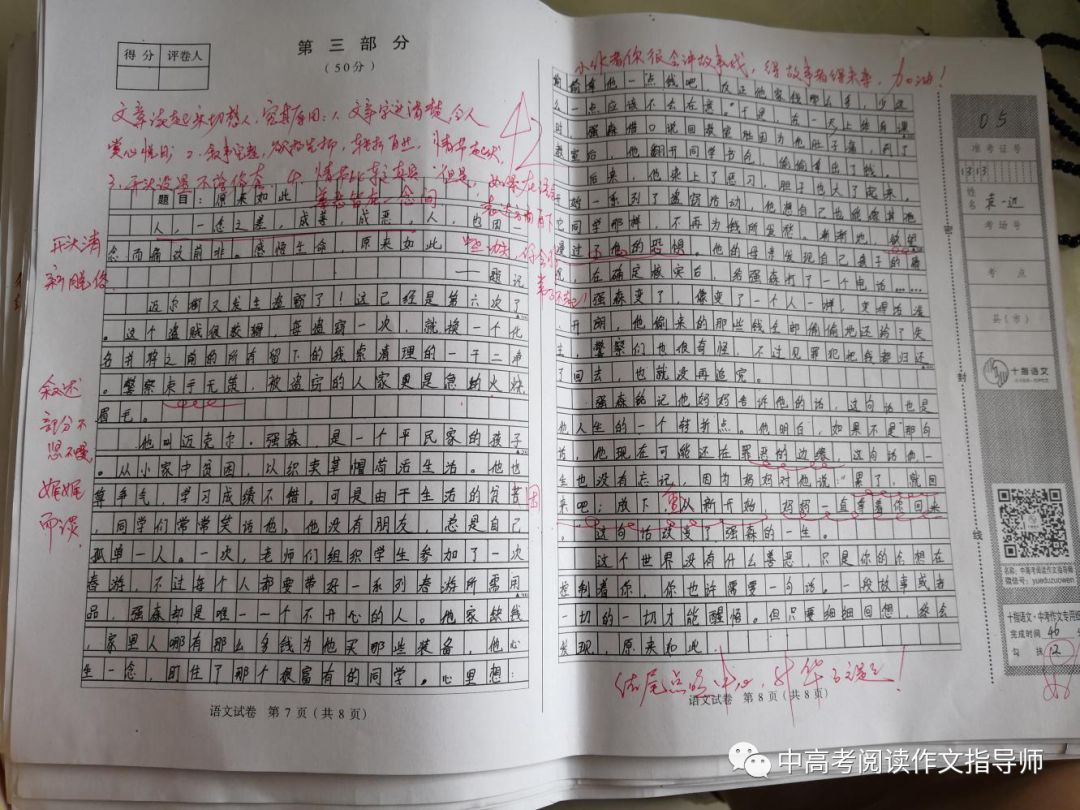 第三部分
(50分)
得分 评卷人
文章读起来
文章字迹清楚,令人
赏心悦目
题目:原来如此
善恶皆在一念间
人,一念之差,成善成恶,人,也因一
念而痛改前非。感悟生命,原来如此
——题记
迈尔街又发生盗窃了!这已经是第六次了
。这个盗贼很敏捷,每盗窃一次,就换一个化
名并将之前的所有留下的线索清理的一干二净
。警察束手无策,被盗窃的人家更是急的火烧
眉毛。
他叫迈克尔·强森,是一个平民家的孩子
。从小家中贫困,以织卖草帽苟活生活。他也
尊争气,学习成绩不错。可是由于生活的贫苦
,同学们常常笑话他。他没有朋友,总是自己
孤单一人。一次,老师们组织学生参加了一次
春游,不过每个人都要带好一系列春游所需用
品,强森却是唯一一个不开心的人。他家缺钱
,家里人哪有那么多钱为他买那些装备,他心
生一念,盯住了那个很富有的同学。心里想:
开头清
新脱俗
叙述
部分不
娓娓
而谈
语文试卷 第7页(共8页)
你很会讲故事哦,
加油!
偷拿他一点钱吧,反正他家钱那么多,少这
么一点应该不会在意。”于是,在一天上体育课
时,强森借口说回教室
教室后,他翻开同学书包,偷偷拿出了钱。
后来,他染上了恶习,胆子也大了起来,
开始一系列了盗窃活动,他想自己也能像其他
同学那样,不再为钱所发愁。渐渐地,欲望
漫过了他的恐惧。他的母亲发现自己孩子的
,在确定被实后,给强森打了一个电话……
强森变了,像变了一个人一样,变得活泼
开朗,他偷来的那些钱全部偷偷地还给了失
主,警察们也很奇怪,不过见罪犯把钱都归还
了回去,也就没再追究。
强森铭记他妈妈告诉他的话,这句话也是
他人生的一个转折点。他明白,如果不是那句
话,他现在可能还在罪恶的边缘,这句话他一
生也没有忘记,因为妈妈对他说:“累了,就回
来吧;放下,重从新开始,妈妈一直等着你回来
。”这句话改变了强森的一生。
这个世界没有什么善恶,只是你的心想在
控制着你,你也许需要一句话、一段故事或者
一切的一切才能醒悟。但只要细细回想,终会
发现,原来如此。
结尾点明中心,升华主题!
语文试卷 第8页(共8页)
05
准考证号
1313
姓名
考场号
考点
县(市)
密
封
线
十指语文
名称:中高考阅读作文指导师
微信号:yueduzuowen
十指语文·中考作文专用
完成时间 46
勾技 12
中高考阅读作文指导师